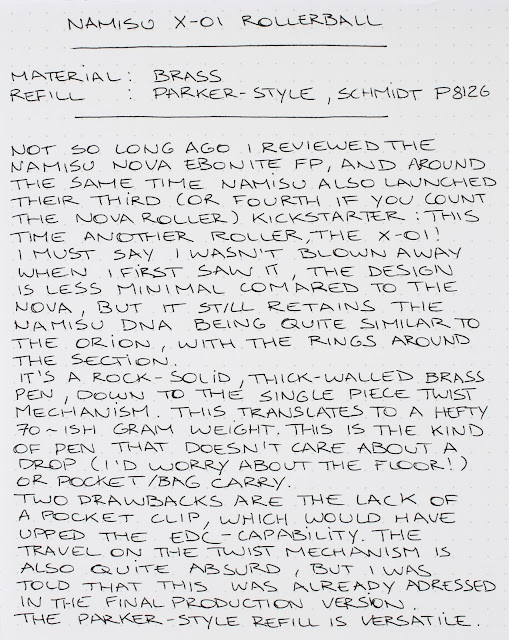 NAMISU X-01 ROLLERBALL
MATERIAL: BRASS
REFILL : PARKER-STYLE, SCHMIDT P8126
NOT SO LONG AGO I REVIEWED THE
NAMISU NOVA EBONITE FP, AND AROUND
THE SAME TIME NAMISU ALSO LAUNCHED
THEIR THIRD (OR FOURTH IF YOU COUNT
THE NOVA ROLLER) KICKSTARTER: THIS
TIME ANOTHER ROLLER, THE X-01!
I MUST SAY I WASN'T BLOWN AWAY
WHEN I FIRST SAW IT, THE DESIGN
IS LESS MINIMAL COMARED TO THE
NOVA, BUT IT STILL RETAINS THE
NAMISU DNA BEING QUITE SIMILAR TO
THE ORION, WITH THE RINGS AROUND
THE SECTION.
IT'S A ROCK-SOLID, THICK-WALLED BRASS
PEN, DOWN TO THE SINGLE PIECE TWIST
MECHANISM. THIS TRANSLATES TO A HEFTY
70~ISH GRAM WEIGHT. THIS IS THE KIND
OF PEN THAT DOESN'T CARE ABOUT A
DROP (I'D WORRY ABOUT THE FLOOR!)
OR POCKET/BAG CARRY.
TWO DRAWBACKS ARE THE LACK OF
A POCKET CLIP, WHICH WOULD HAVE
UPPED THE EDC-CAPABILITY. THE
TRAVEL ON THE TWIST MECHANISM IS
ALSO QUITE ABSURD, BUT I WAS
TOLD THAT THIS WAS ALREADY ADRESSED
IN THE FINAL PRODUCTION VERSION.
THE PARKER-STYLE REFILL IS VERSATILE.